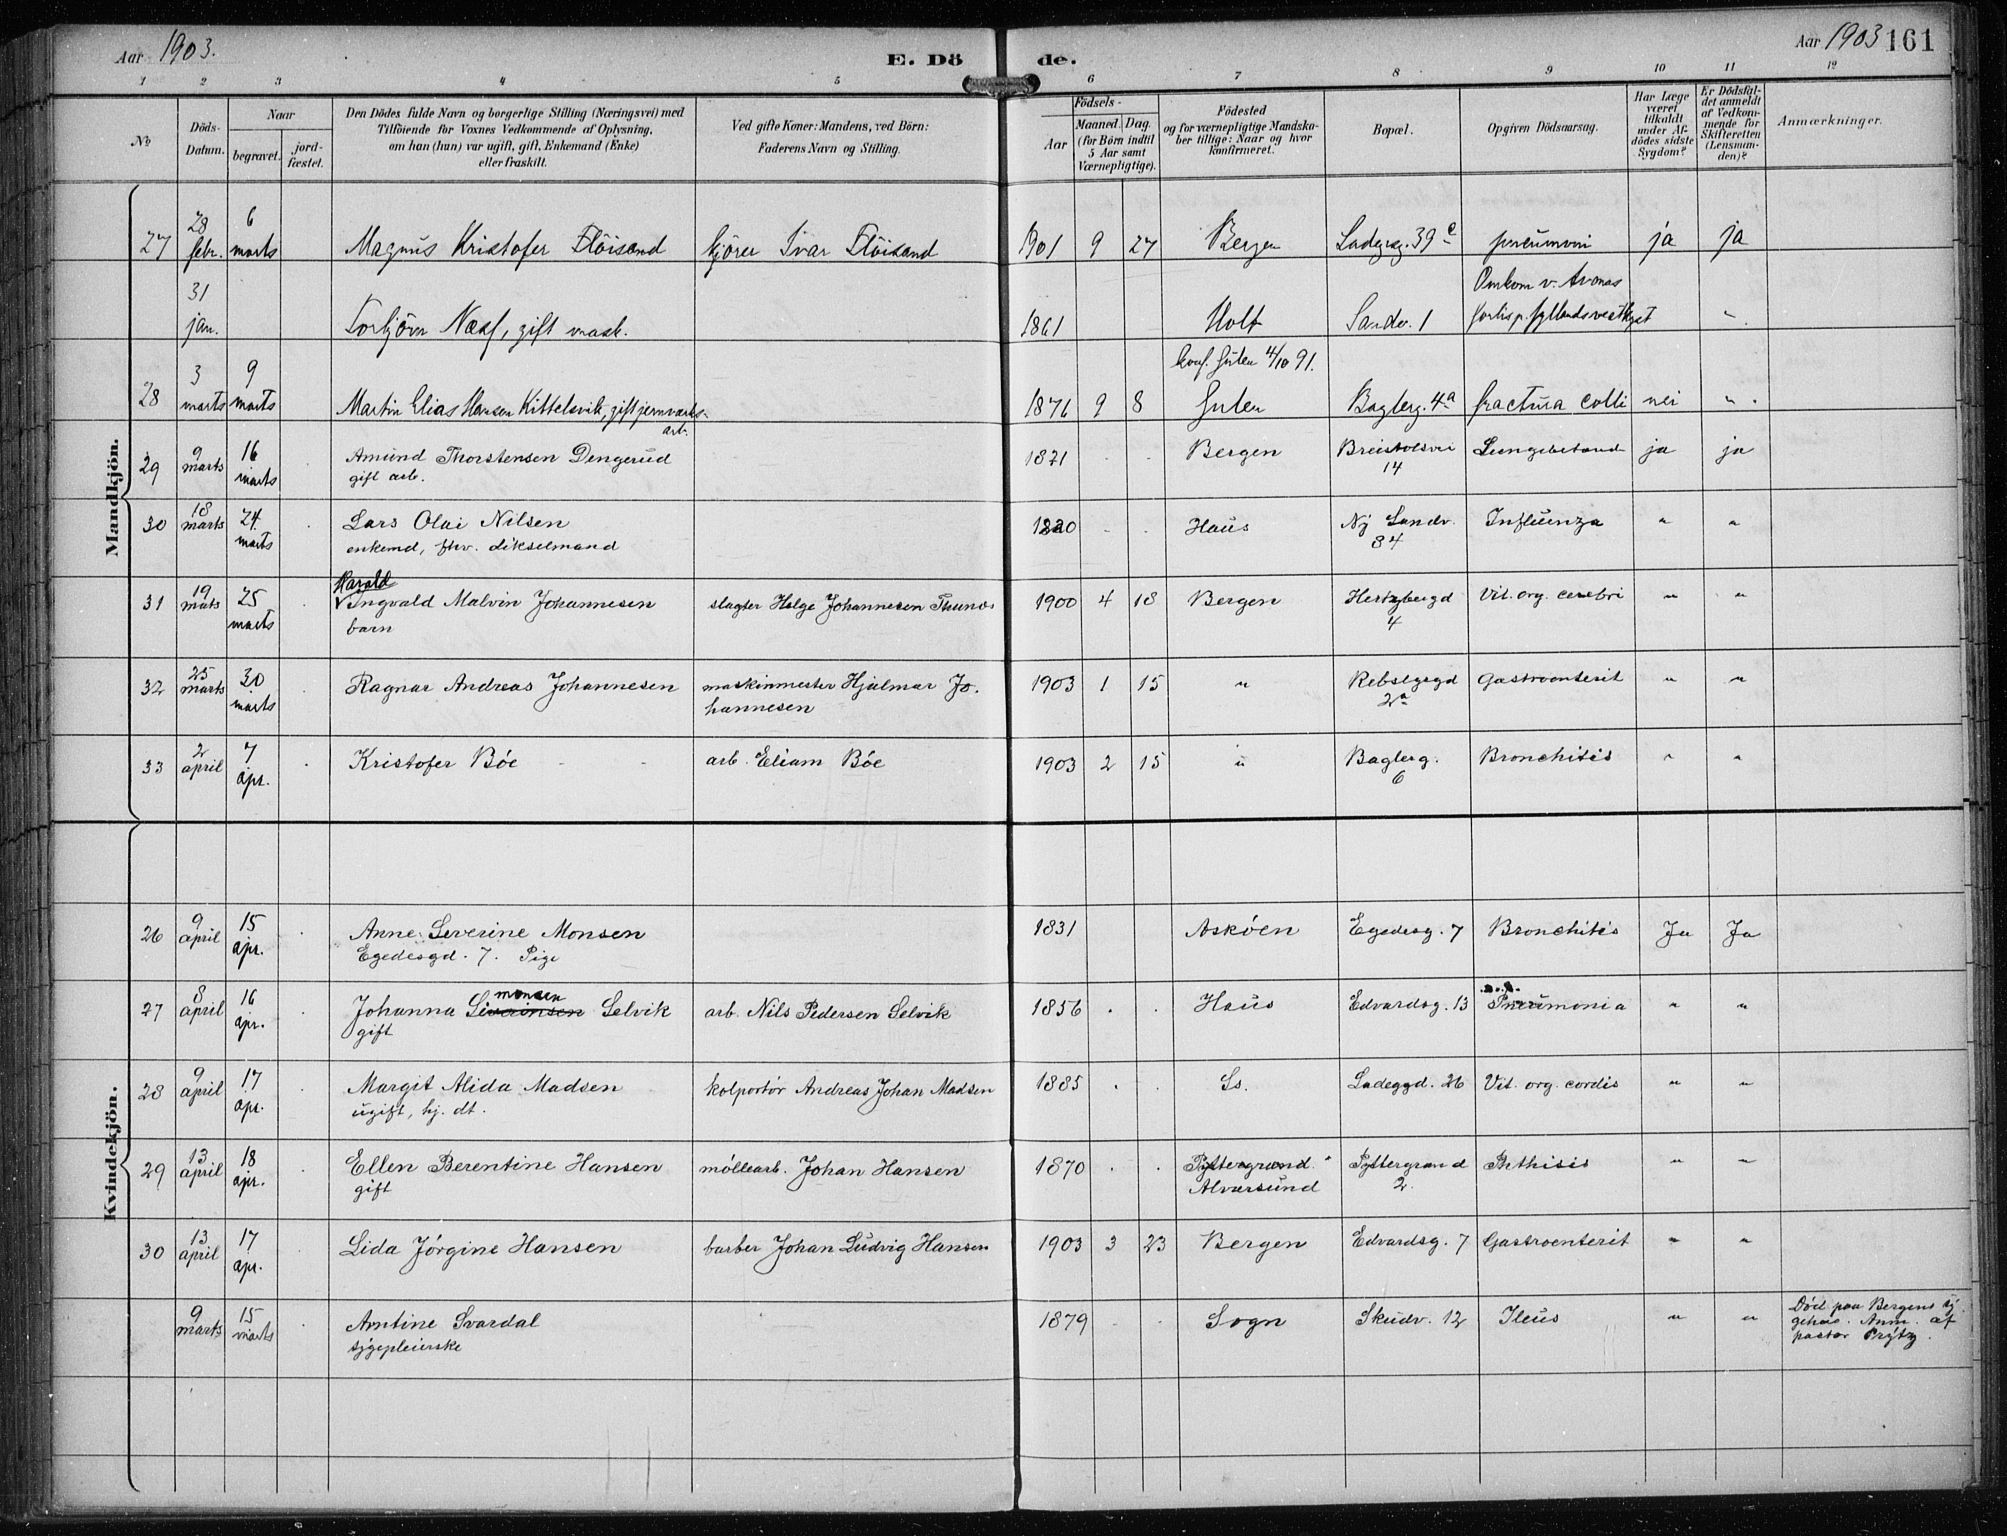 Aar 1903.
E. Dö
de.
Aar 1903 161
1 2 3 4 5 6 7 8 9 10 11 12
No
Döds-Datum.
Naar
begravet.
jord-fæstet.
Den Dödes fulde Navn og borgerlige Stilling (Næringsvei) med
Tilföiende for Voxnes Vedkommende af Oplysning,
om han (hun) var ugift, gift, Enkemand (Enke)
eller fraskilt.
Ved gifte Koner: Mandens, ved Börn:
Faderens Navn og Stilling.
Födsels-
Aar
Maaned. Dag.
(for Börn indtil
5 Aar samt
Værnepligtige).
Födested
og for værnepligtige Mandska-
ber tillige: Naar og hvor
konfirmeret.
Bopæl.
Opgiven Dödsaarsag.
Har Læge
været
tilkaldt
under Af-
dödes sidste
Sygdom?
Er Dödsfal-
det anmeldt
af Vedkom-
mende for
Skifteretten
(Lensman-
den)?
Anmærkninger.
Mandkjön.
27 28 febr. 6 marts Magnus Kristofer Flöisand kjörer Ivar Flöisand 1901 9 27 Bergen Ladegsg. 39 c pneumoni ja ja
31 jan. Torbjörn Næss, gift mask. 1861 Holt Sandv. 1 Omkom v. Avonas
forlis p. Jyllands vestkyst "
28 3 marts 9 marts Martin Elias Hansen Kittelsvik, gift jernværks-
arb. 1876 9 8 konf. Gulen 4/10 91.
Gulen Bagerg. 4a fractura colli nei "
29 9 marts 16 marts Amund Thorstensen Dengerud
gift arb. 1871 Bergen Breistolsvei
14 Lungebetænd ja ja
30 18 marts 24 marts Lars Olai Nilsen
enkemd, fhv. dikselmand 1820 Haus Ny Sandv.
84 Influenza " "
31 19 marts 25 marts Harald
Ingvald Malvin Johannesen
barn slagter Helge Johannesen Thunæs 1900 4 18 Bergen Hertzbergd
4 Vit. org. cerebri " "
32 25 marts 30 marts Ragnar Andreas Johannesen maskinmester Hjalmar Jo.
hannesen 1903 1 15 " Rebslgsgd
2a Gastroenterit " "
33 2 april 7 apr. Kristofer Böe arb. Eliam Böe 1903 2 15 " Bagerg.
6 Bronchitis " "
Kvindekjön.
26 9 april 15 apr. Anne Severine Monsen
Egedesgd. 7. Pige 1831 Askøen Egedesg. 7 Bronchitis Ja Ja
27 8 april 16 apr. Johanna Severinsen monsen Selvik
gift arb. Nils Pedersen Selvik 1856 Haus Edvardsg. 13 Pneumonia " "
28 9 april 17 apr. Margit Alida Madsen
ugift, hj. dt. kolportør Andreas Johan Madsen 1885 Ss. Ladeggd. 26 Vit. org. cordis " "
29 13 april 18 apr. Ellen Berentine Hansen
gift møllearb. Johan Hansen 1870 Pyttergrund.
Alversund Pyttergrund
2. Phthisis " "
30 13 april 17 apr. Lida Jörgine Hansen barber Johan Ludvig Hansen 1903 3 23 Bergen Edvardsg. 7 Gastroenterit " "
9 marts 15 marts Amtine Svardal
sygepleierske 1879 Sogn Skudv. 12 Ileus " " Død paa Bergens sy-
gehus. Anm. af
pastor Prytz.